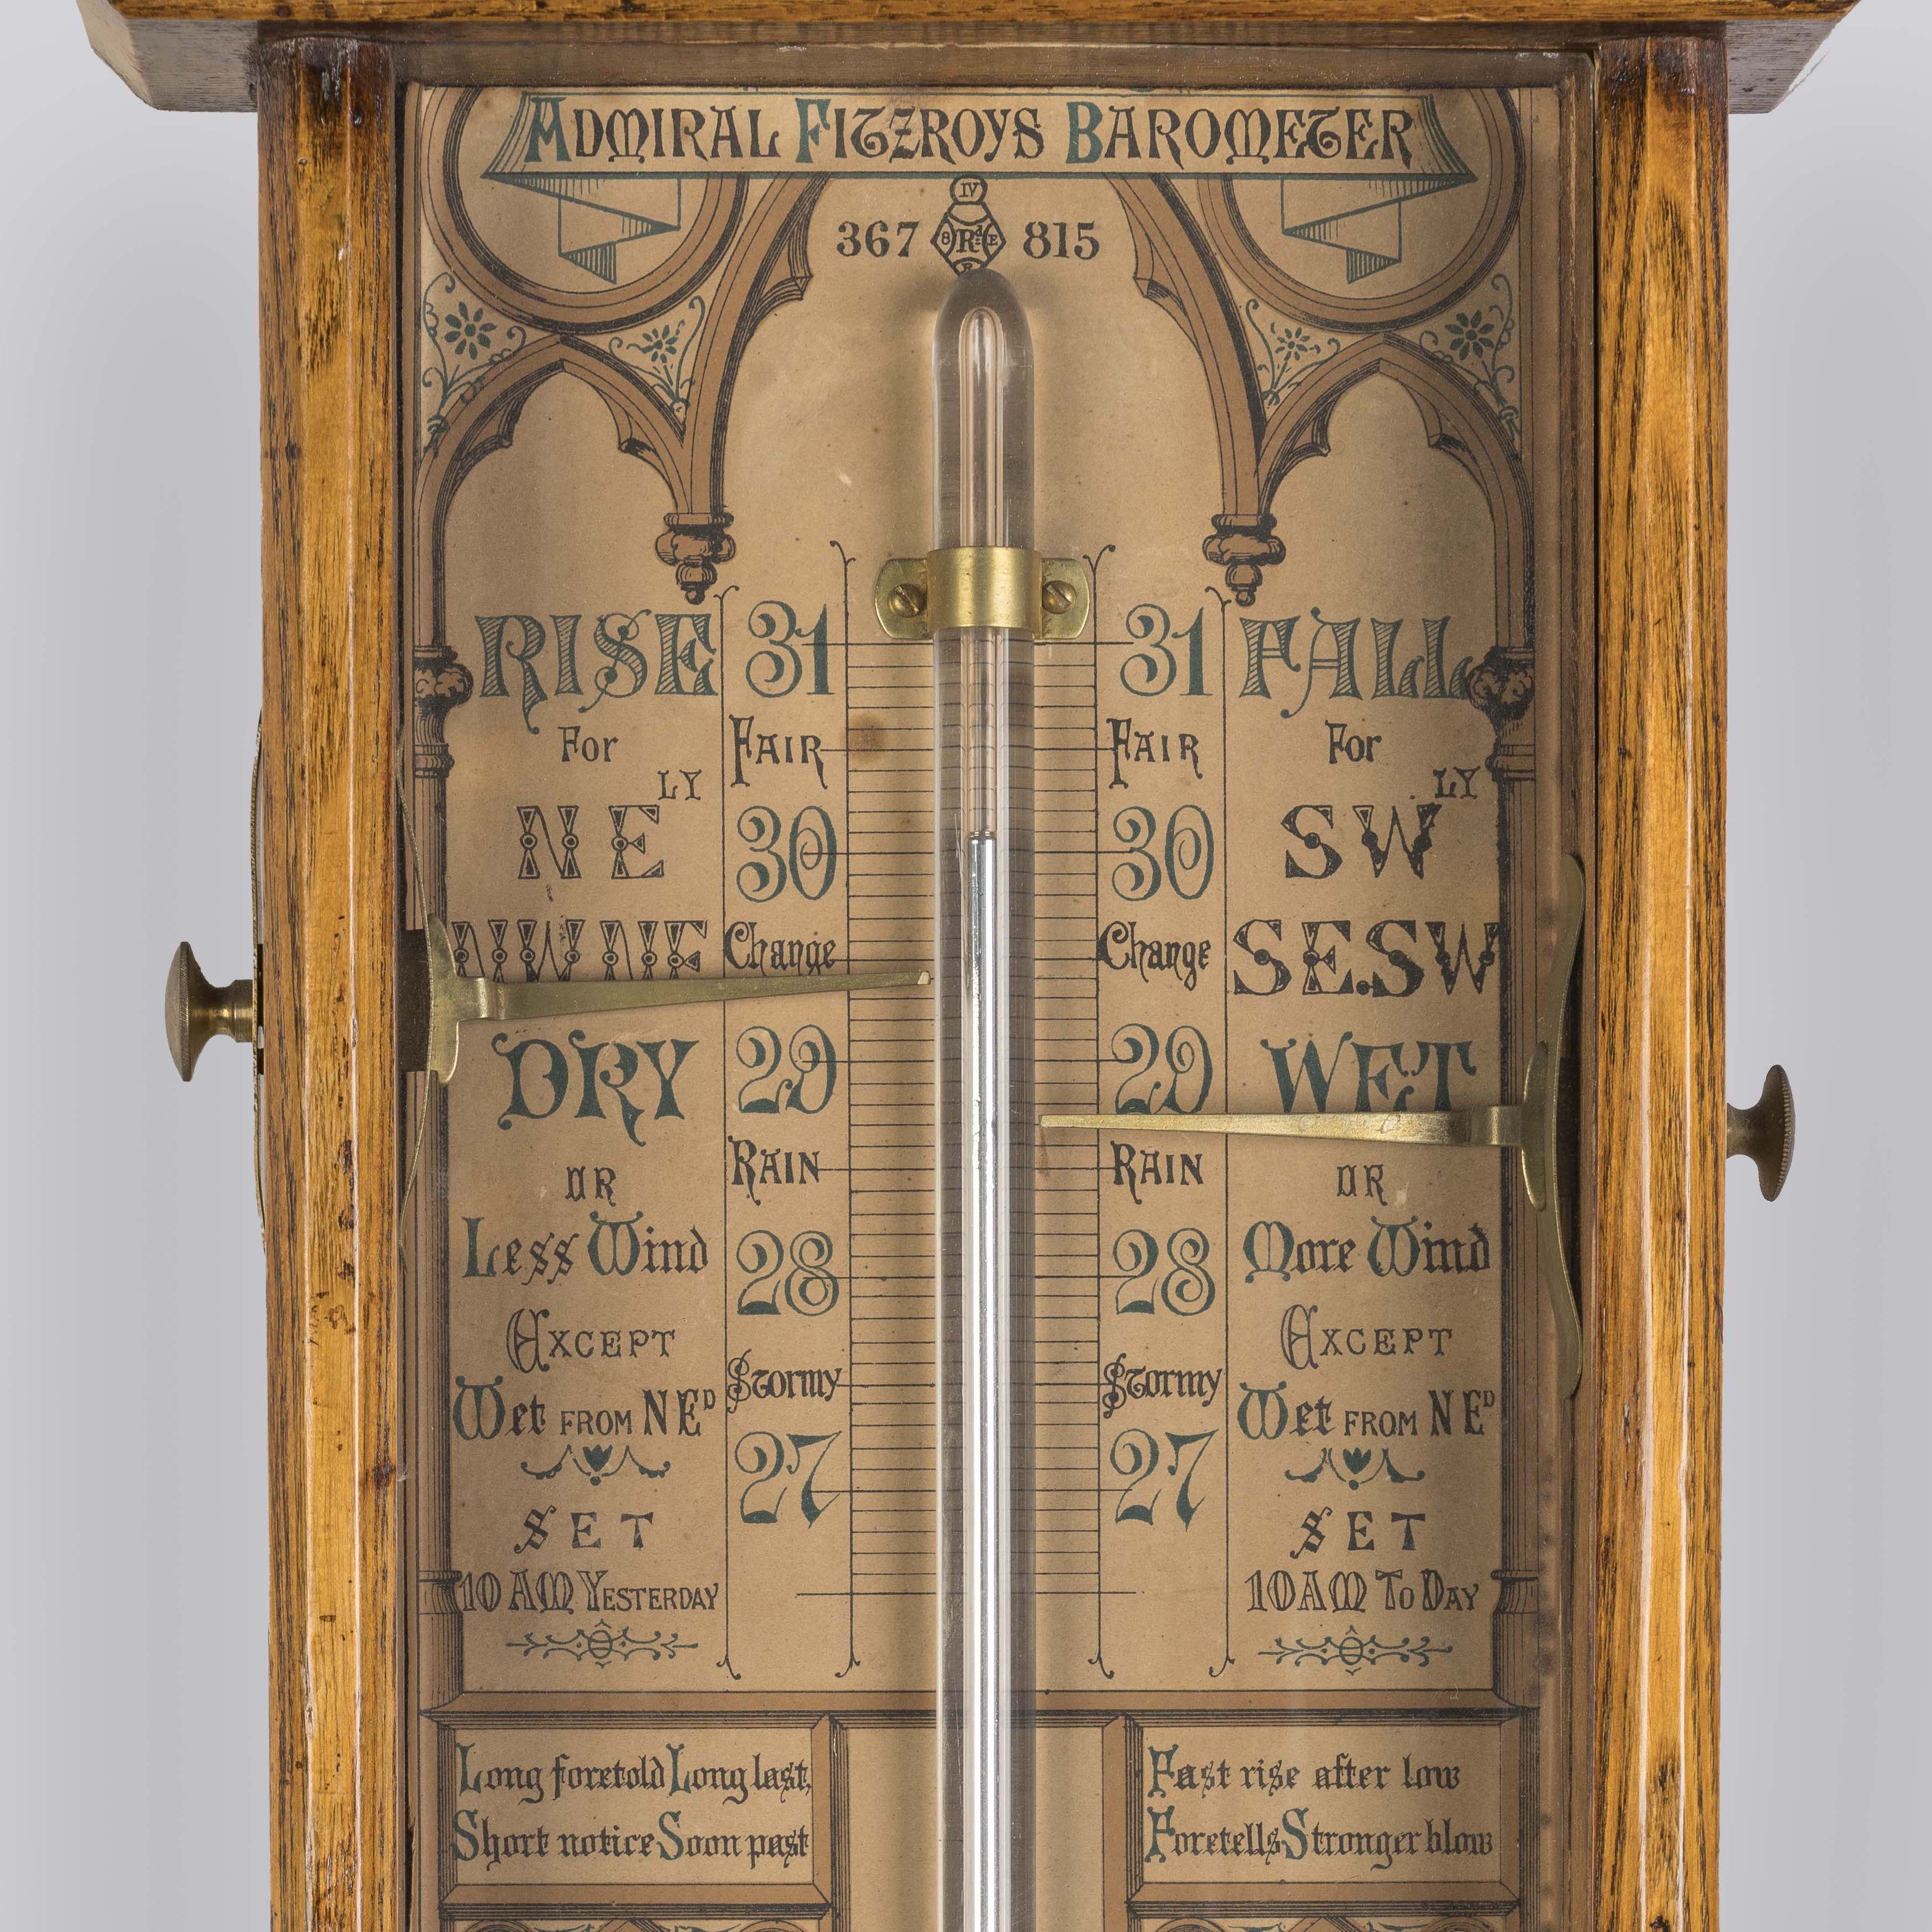 ADMIRAL FITZROYS BAROMETER
IV
367 8 Rd E 815
R
RISE
For
NELY
NW.NE
DRY
OR
Less Wind
EXCEPT
Wet FROM NED
SET
10 AM YESTERDAY
31
FAIR
30
Change
29
RAIN
28
Stormy
27
31
FAIR
30
Change
29
RAIN
28
Stormy
27
FALL
For
SWLY
SE.SW
WET
OR
More Wind
EXCEPT
Wet FROM NED
SET
10 AM TO DAY
Long foretold Long last,
Short notice Soon past
Fast rise after low
Foretells Stronger blow